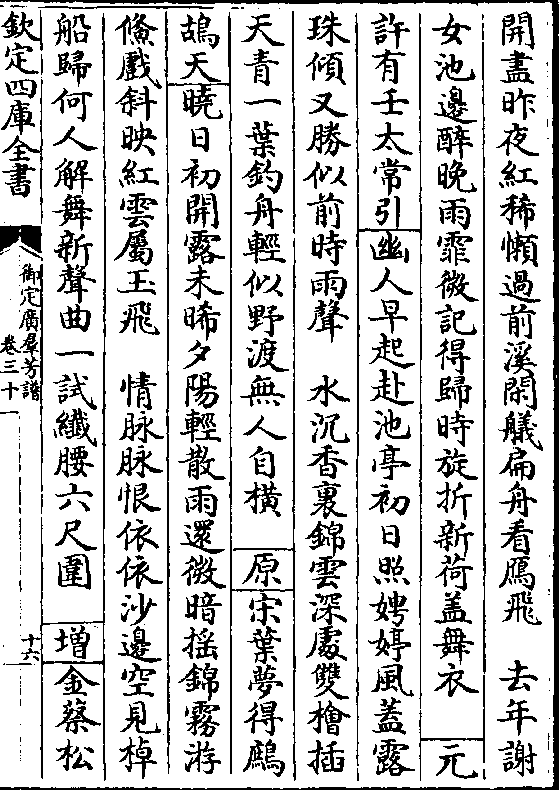 開盡昨夜紅稀懶過前溪閑艤扁舟看鴈飛　去年謝
女池邊醉晚雨霏微記得歸時旋折新荷盖舞衣　元
許有壬太常引幽人早起赴池亭初日照娉婷風蓋露
珠傾又勝似前時雨聲　水沉香裏錦雲深處雙檜插
天青一葉釣舟輕似野渡無人自橫　原宋葉夢得鷓
鴣天曉日初開露未晞夕陽輕散雨還微暗摇錦霧游
鯈戲斜映紅雲屬玉飛　情脉脉恨依依沙邊空見棹
船歸何人解舞新聲曲一試纎腰六尺圍　增金蔡松
欽定四庫全書
御定廣羣芳譜
卷三十
十六